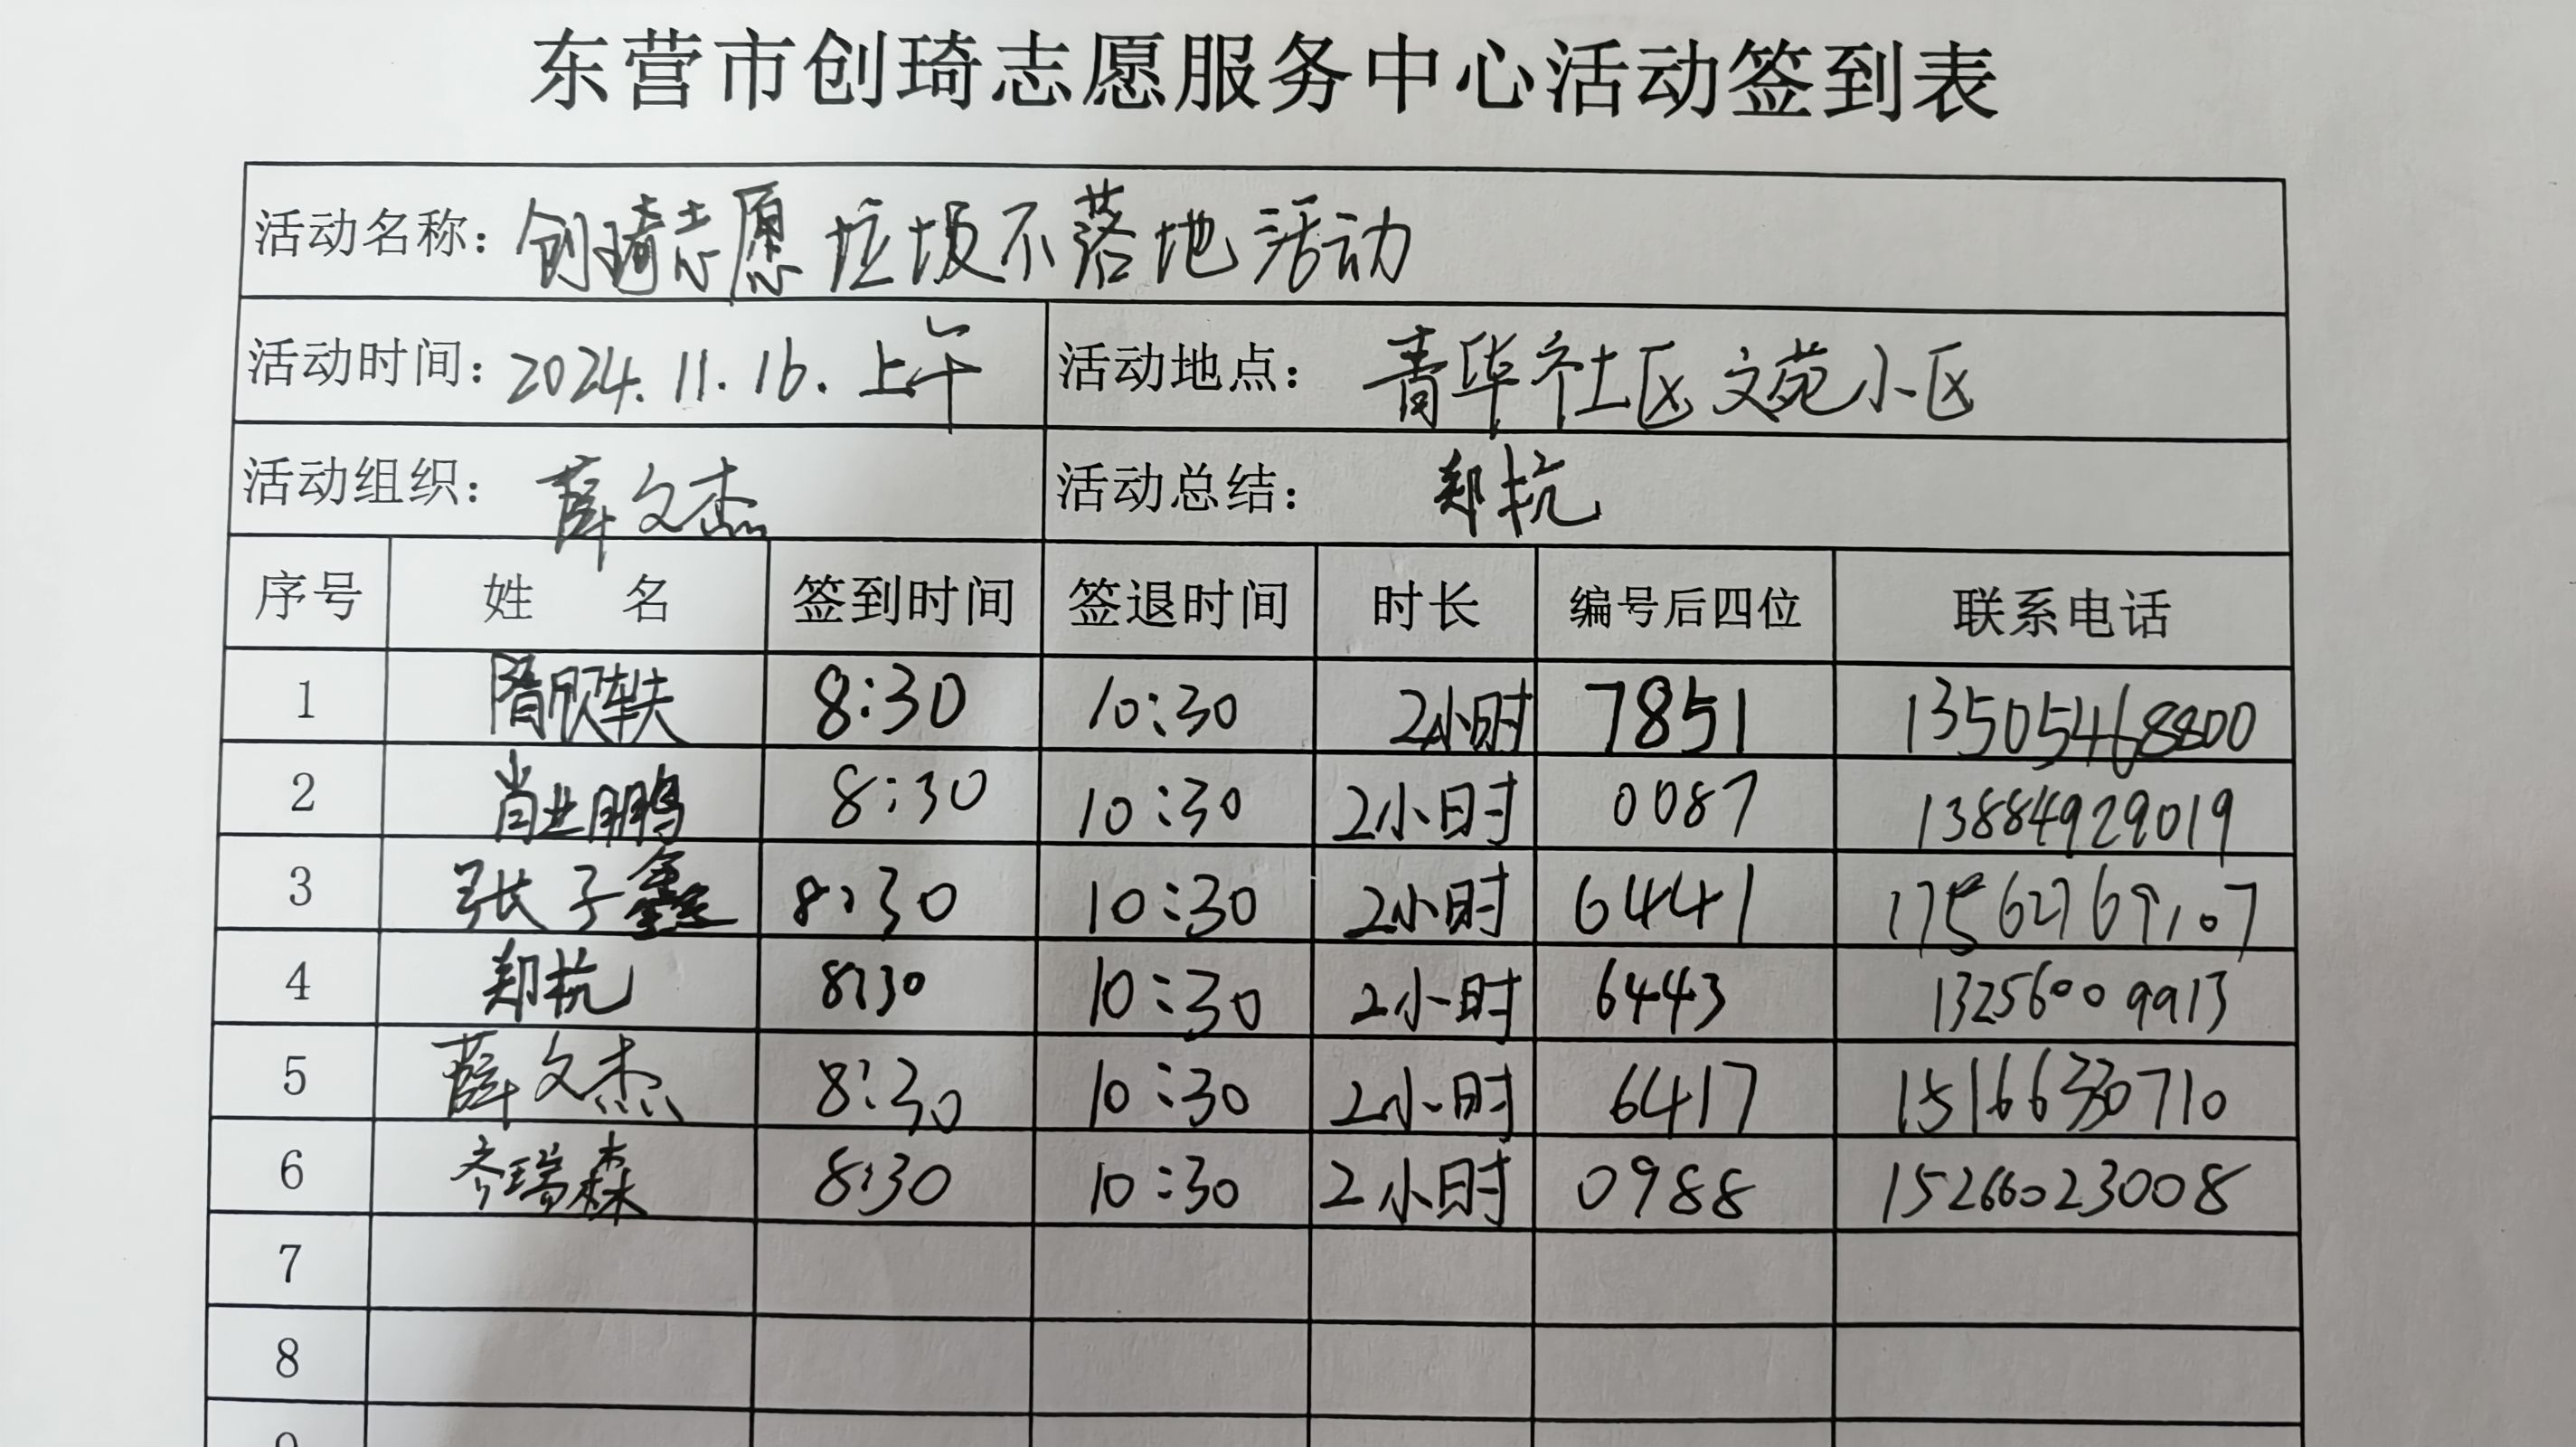 东营市创琦志愿服务中心活动签到表
活动名称：创琦志愿垃圾不落地活动
活动时间：2024.11.16.上午 活动地点：青华社区文苑小区
活动组织：薛文杰 活动总结：郑抗
序号 姓名 签到时间 签退时间 时长 编号后四位 联系电话
1 隋欣轶 8:30 10:30 2小时 7851 13505468800
2 肖业鹏 8:30 10:30 2小时 0087 13884929019
3 张子鑫 8:30 10:30 2小时 6441 17562769107
4 郑抗 8:30 10:30 2小时 6443 13256009913
5 薛文杰 8:30 10:30 2小时 6417 15166330710
6 齐瑞森 8:30 10:30 2小时 0988 15266023008
7
8
9